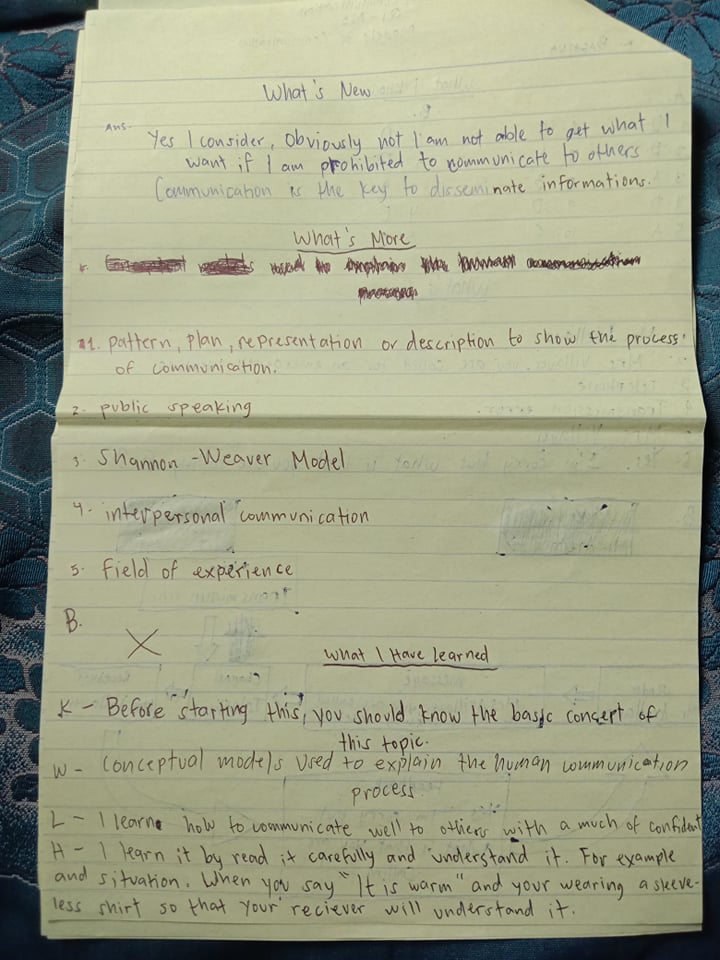 What's New
Ans. Yes I consider, Obviously not I am not able to get what I
want if I am prohibited to communicate to others
Communication is the key to disseminate informations.
What's More
1. pattern, plan, representation or description to show the process
of communication.
2. public speaking
3. Shannon-Weaver Model
4. interpersonal communication
5. Field of experience
B.
What I Have Learned
K - Before starting this, you should know the basic concept of
this topic.
W - Conceptual models used to explain the human communication
process.
L - I learne how to communicate well to others with a much of confident
H - I learn it by read it carefully and understand it. For example
and situation. When you say "It is warm" and your wearing a sleeve-
less shirt so that your reciever will understand it.